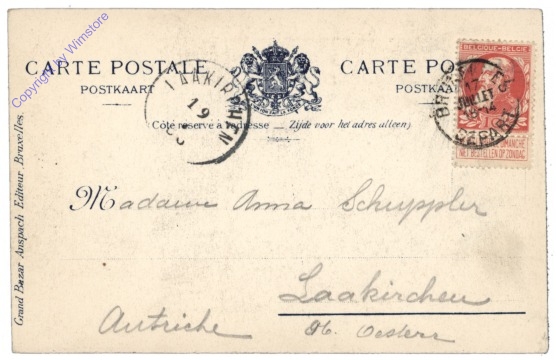 Copyright by Wimstore
CARTE POSTALE CARTE POSTALE
POSTKAART POSTKAART
Côté réservé à l'adresse — Zijde voor het adres alleen
BELGIQUE-BELGIË
BRUXELLES
17
JUILLET
DÉPART
NIET BESTELLEN OP ZONDAG
LAAKIRCHEN
19
Grand Bazar Anspach Editeur Bruxelles.
Madame Anna Schuppler
Laakirchen
Autriche Ob. Oesterr